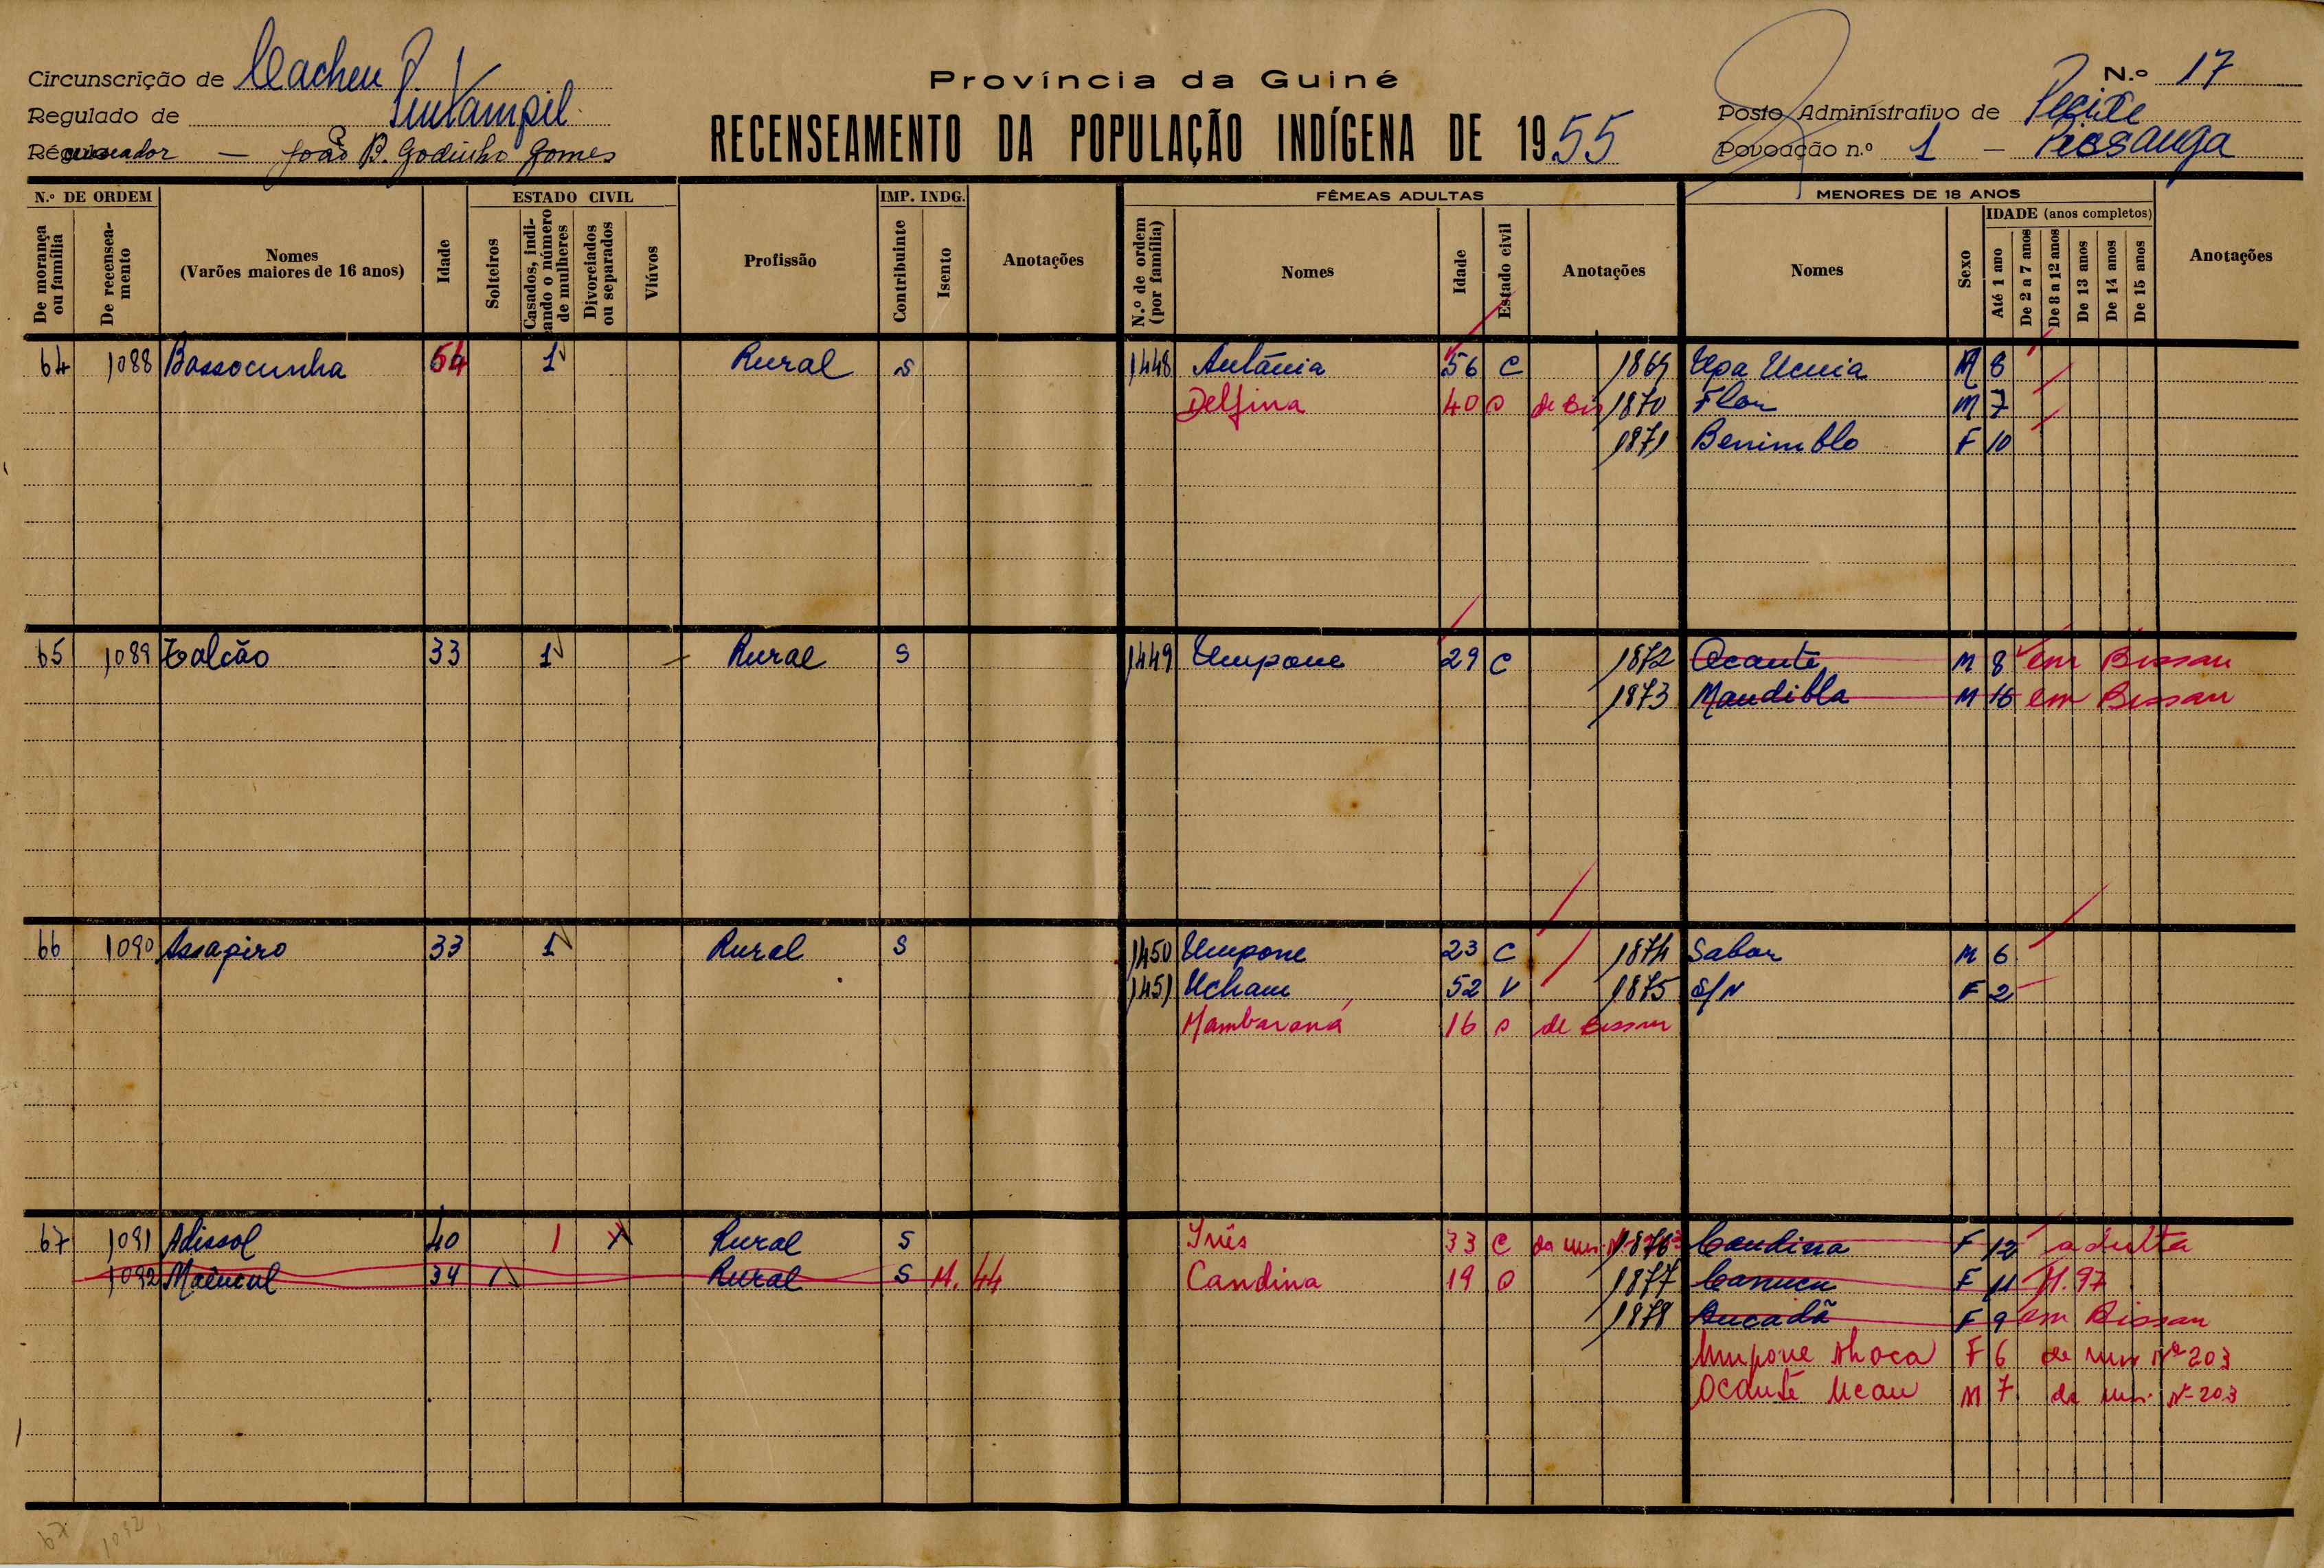 Província da Guiné
RECENSEAMENTO DA POPULAÇÃO INDÍGENA DE 1955
Circunscrição de Cacheu
Regulado de
João B. Godinho Gomes
N.º 17
Posto Administrativo de Pecixe
Povoação n.º 1 -
N.º DE ORDEM
De morança ou família
De recenseamento
Nomes
(Varões maiores de 16 anos)
Idade
ESTADO CIVIL
Solteiros
Casados, indicando o número de mulheres
Divorciados ou separados
Viúvos
Profissão
IMP. INDG.
Contribuinte
Isento
Anotações
FÊMEAS ADULTAS
N.º de ordem (por família)
Nomes
Idade
Estado civil
Anotações
MENORES DE 18 ANOS
Nomes
Sexo
IDADE (anos completos)
Até 1 ano
De 2 a 7 anos
De 8 a 12 anos
De 13 anos
De 14 anos
De 15 anos
Anotações
64 1088 Bassocunha 54 1 Rural S 1448 Antânia 56 C 1869 Upa Ucuia M 8
Delfina 40 S de Bis 1870 Flor M 7
1871 Benimblo F 10
65 1089 Talcão 33 1 Rural S 1449 Umpone 29 C 1872 Ocante M 8 em Bissau
1873 Mandibla M 16 em Bissau
66 1090 Assapiro 33 1 Rural S 1450 Umpone 23 C 1874 Sabor M 6
1451 Ucham 52 V 1875 S/N F 2
Mambaraná 16 S de Bissau
67 1091 Adissol 40 1 X Rural S Inês 33 C 1876 Candina F 12 adulta
1092 34 1 Rural S M. 44 Candina 19 S 1877 Canucu F 11 M. 97
1878 Aucadã F 9 em Bissau
Umpone F 6 de Nº 203
Ocante Ucau M 7 da Nº 203
67 1092